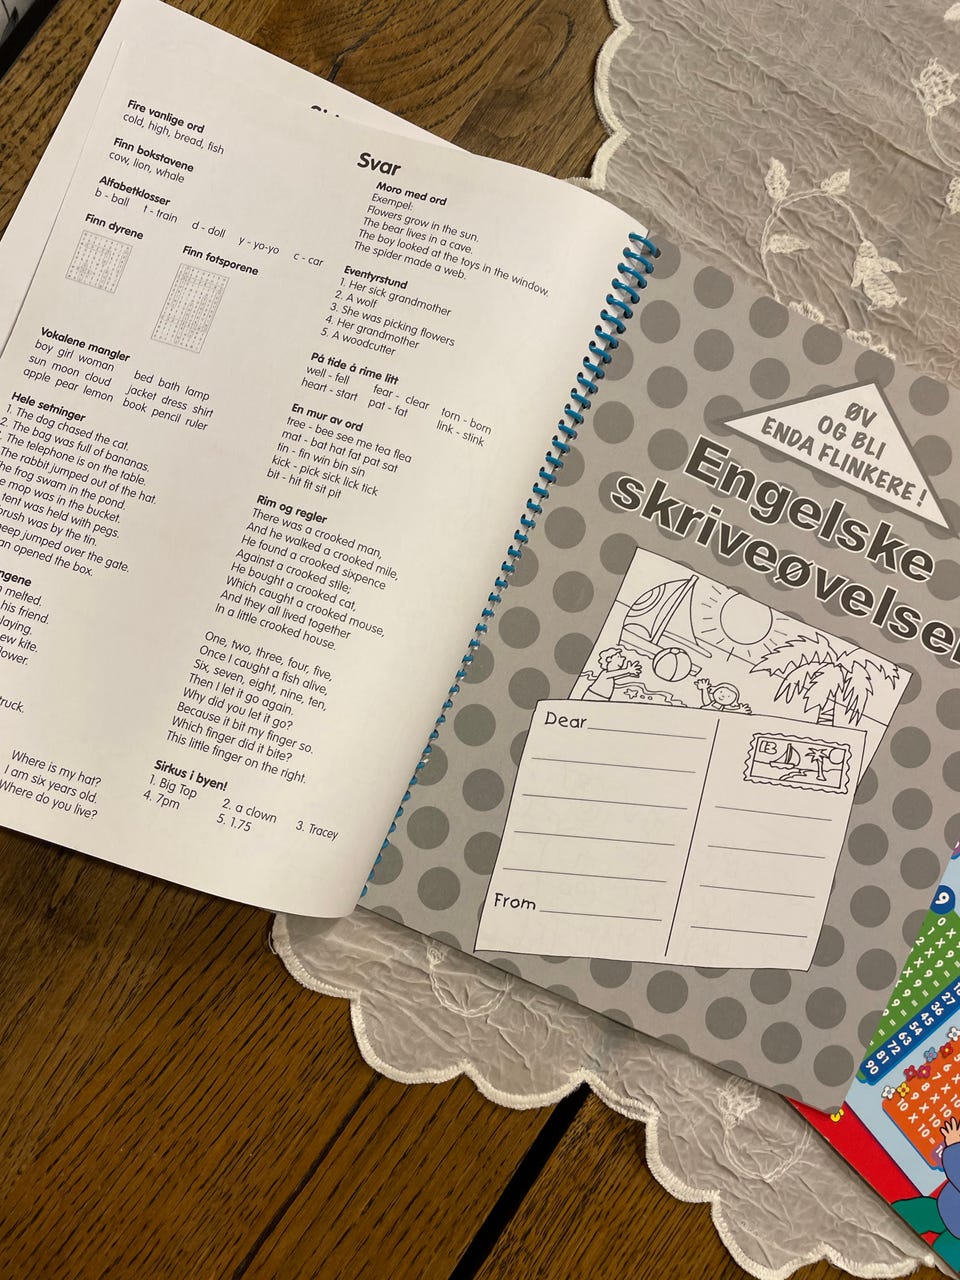 Svar
Fire vanlige ord
cold, high, bread, fish
Finn bokstavene
cow, lion, whale
Alfabetklosser
b - ball t - train d - doll y - yo-yo c - car
Finn dyrene
Finn fotsporene
Vokalene mangler
boy girl woman bed bath lamp
sun moon cloud jacket dress shirt
apple pear lemon book pencil ruler
Hele setninger
1. The dog chased the cat.
2. The bag was full of bananas.
The telephone is on the table.
The rabbit jumped out of the hat.
he frog swam in the pond.
mop was in the bucket.
tent was held with pegs.
brush was by the tin.
eep jumped over the gate.
an opened the box.
ngene
melted.
his friend.
laying.
ew kite.
lower.
truck.
Where is my hat?
I am six years old.
Where do you live?
Moro med ord
Exempel:
Flowers grow in the sun.
The bear lives in a cave.
The boy looked at the toys in the window.
The spider made a web.
Eventyrstund
1. Her sick grandmother
2. A wolf
3. She was picking flowers
4. Her grandmother
5. A woodcutter
På tide å rime litt
well - fell fear - clear torn - born
heart - start pat - fat link - stink
En mur av ord
tree - bee see me tea flea
mat - bat hat fat pat sat
tin - fin win bin sin
kick - pick sick lick tick
bit - hit fit sit pit
Rim og regler
There was a crooked man,
And he walked a crooked mile,
He found a crooked sixpence
Against a crooked stile;
He bought a crooked cat,
Which caught a crooked mouse,
And they all lived together
In a little crooked house.
One, two, three, four, five,
Once I caught a fish alive,
Six, seven, eight, nine, ten,
Then I let it go again,
Why did you let it go?
Because it bit my finger so.
Which finger did it bite?
This little finger on the right.
Sirkus i byen!
1. Big Top 2. a clown 3. Tracey
4. 7pm 5. 1.75
ØV
OG BLI
ENDA FLINKERE!
Engelske
skriveøvelser
Dear
From
9
0 X
1 X
2 X
27
36
45
54
63
72
81
90
6 X
7 X
8 X 10
9 X 10
10 X 10 =